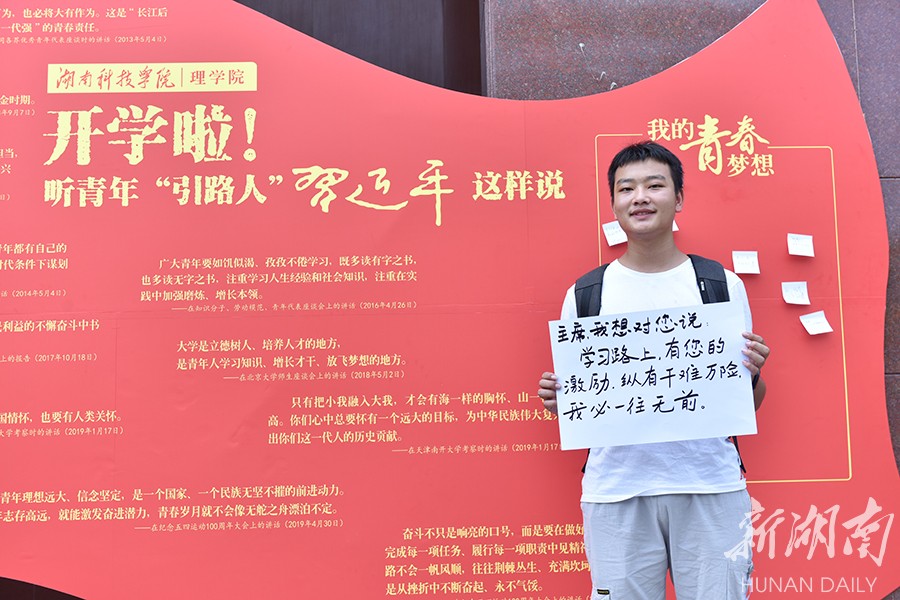 为，也必将大有作为。这是“长江后
一代强”的青春责任。
同各界优秀青年代表座谈时的讲话（2013年5月4日）
湖南科技学院 理学院
开学啦！
听青年“引路人”习近平 这样说
金时期。
年9月7日）
担当，
兴
日）
年都有自己的
时代条件下谋划
话（2014年5月4日）
民利益的不懈奋斗中书
上的报告（2017年10月18日）
国情怀，也要有人类关怀。
大学考察时的讲话（2019年1月17日）
青年理想远大、信念坚定，是一个国家、一个民族无坚不摧的前进动力。
年志存高远，就能激发奋进潜力，青春岁月就不会像无舵之舟漂泊不定。
——在纪念五四运动100周年大会上的讲话（2019年4月30日）
广大青年要如饥似渴、孜孜不倦学习，既多读有字之书，
也多读无字之书，注重学习人生经验和社会知识，注重在实
践中加强磨炼、增长本领。
——在知识分子、劳动模范、青年代表座谈会上的讲话（2016年4月26日）
大学是立德树人、培养人才的地方，
是青年人学习知识、增长才干、放飞梦想的地方。
——在北京大学师生座谈会上的讲话（2018年5月2日）
只有把小我融入大我，才会有海一样的胸怀、山一
高。你们心中总要怀有一个远大的目标，为中华民族伟大复
出你们这一代人的历史贡献。
——在天津南开大学考察时的讲话（2019年1月17日
奋斗不只是响亮的口号，而是要在做好
完成每一项任务、履行每一项职责中见精神
路不会一帆风顺，往往荆棘丛生、充满坎坷
是从挫折中不断奋起、永不气馁。
我的
青春
梦想
主席，我想对您说：
学习路上，有您的
激励，纵有千难万险，
我必一往无前。
新湖南
HUNAN DAILY